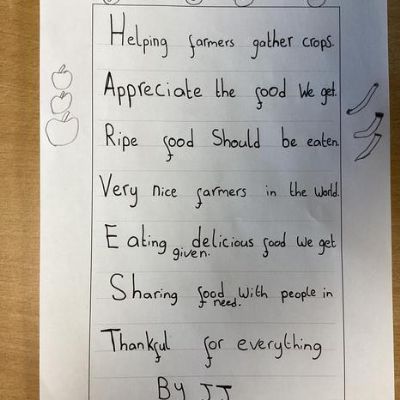 Helping farmers gather crops.
Appreciate the food we get.
Ripe food Should be eaten.
Very nice farmers in the world.
Eating delicious food we get
given.
Sharing food with people in
need.
Thankful for everything
By JJ